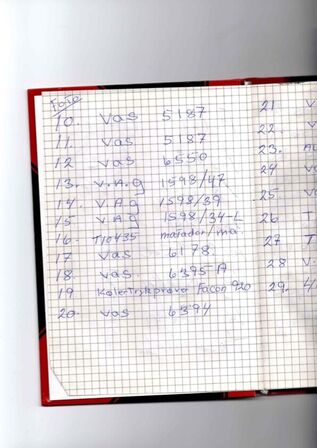 Foto
10. Vas 5187
11. Vas 5187
12 Vas 6550
13. V.A.g 1598/47
14. V.A.g 1598/39
15 V.A.g 1598/34-L
16. T10435 matador/ma.
17 Vas 6178
18. Vas. 6395-A
19. Kølertrykprøve Facon 920
20. Vas 6394
21 V
22. V
23. A
24 V
25. V
26 T
27 T
28 V
29. 4